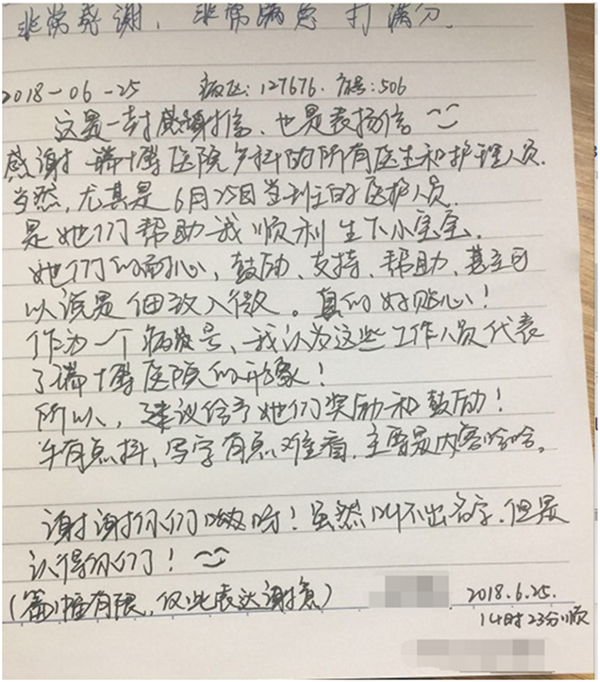 非常感谢，非常满意 打满分.
2018-06-25 病区:127676. 房号:506
这是一封感谢信、也是表扬信
感谢瑞博医院产科的所有医生和护理人员.
当然,尤其是6月25日当班的医护人员.
是她们帮助我顺利生下小宝宝.
她们的耐心，鼓励、支持、帮助、甚至可
以说是细致入微。真的好贴心！
作为一个病号、我认为这些工作人员代表
了瑞博医院的形象！
所以，建议给予她们奖励和鼓励！
手有点抖，写字有点难看，主要是内容哈哈。
谢谢你们呦呀！虽然叫不出名字,但是
认得你们！
(篇幅有限，仅此表达谢意)
2018.6.25.
14时23分顺